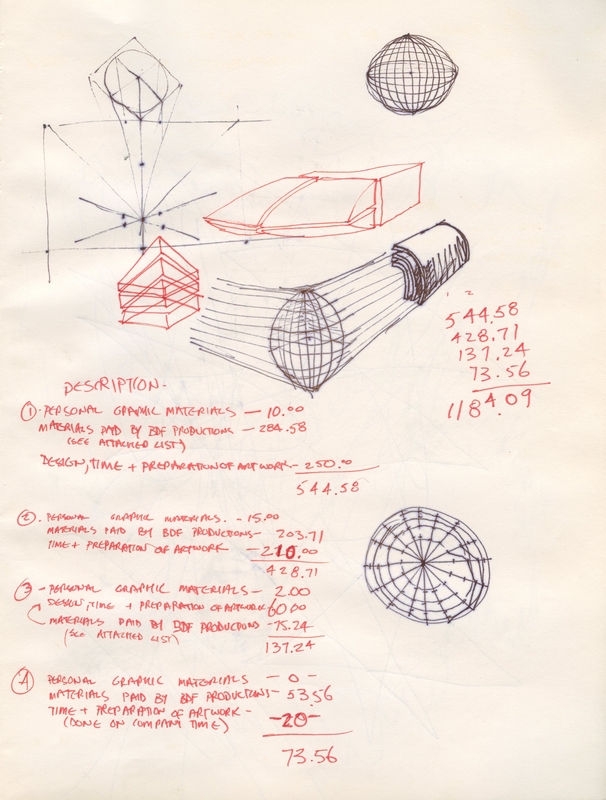 544.58
428.71
137.24
73.56
1184.09
DESCRIPTION.
① - PERSONAL GRAPHIC MATERIALS — 10.00
MATERIALS PAID BY BDF PRODUCTIONS — 284.58
(SEE ATTACHED LIST)
DESIGN, TIME + PREPARATION OF ARTWORK — 250.00
544.58
②. PERSONAL GRAPHIC MATERIALS. - 15.00
MATERIALS PAID BY BDF PRODUCTIONS — 203.71
TIME + PREPARATION OF ARTWORK — 210.00
428.71
③ - PERSONAL GRAPHIC MATERIALS — 2.00
DESIGN, TIME + PREPARATION OF ARTWORK 60.00
MATERIALS PAID BY BDF PRODUCTIONS — 75.24
(SEE ATTACHED LIST)
137.24
④ PERSONAL GRAPHIC MATERIALS — 0 —
MATERIALS PAID BY BDF PRODUCTIONS — 53.56
TIME + PREPARATION OF ARTWORK - — 20 —
(DONE ON COMPANY TIME)
73.56